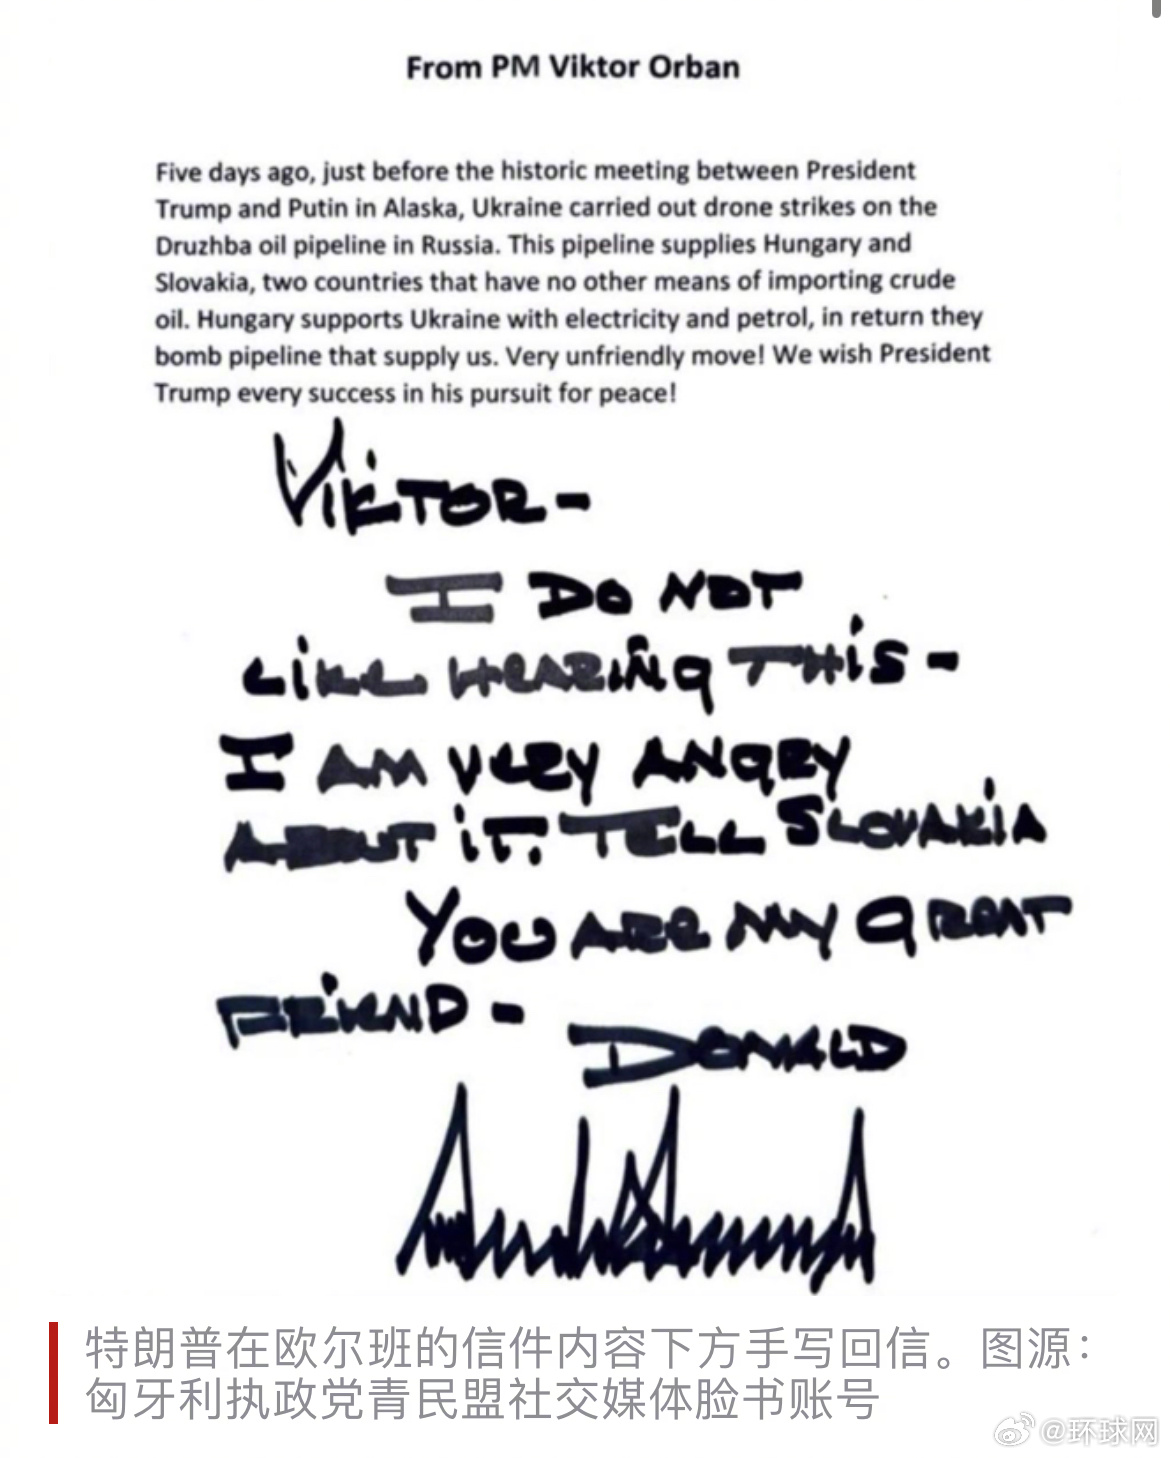 From PM Viktor Orban
Five days ago, just before the historic meeting between President
Trump and Putin in Alaska, Ukraine carried out drone strikes on the
Druzhba oil pipeline in Russia. This pipeline supplies Hungary and
Slovakia, two countries that have no other means of importing crude
oil. Hungary supports Ukraine with electricity and petrol, in return they
bomb pipeline that supply us. Very unfriendly move! We wish President
Trump every success in his pursuit for peace!
VIKTOR -
I DO NOT
LIKE HEARING THIS -
I AM VERY ANGRY
ABOUT IT. TELL SLOVAKIA
YOU ARE MY GREAT
FRIEND -
DONALD
特朗普在欧尔班的信件内容下方手写回信。图源：
匈牙利执政党青民盟社交媒体脸书账号
@环球网